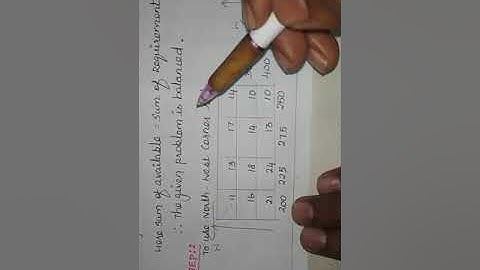 Here sum of available = sum of requirement
∴ The given problem is balanced.
STEP:2
To use North-West Corner
11 13 17 14
16 18 14 10
21 24 13 10 400
200 225 275 250